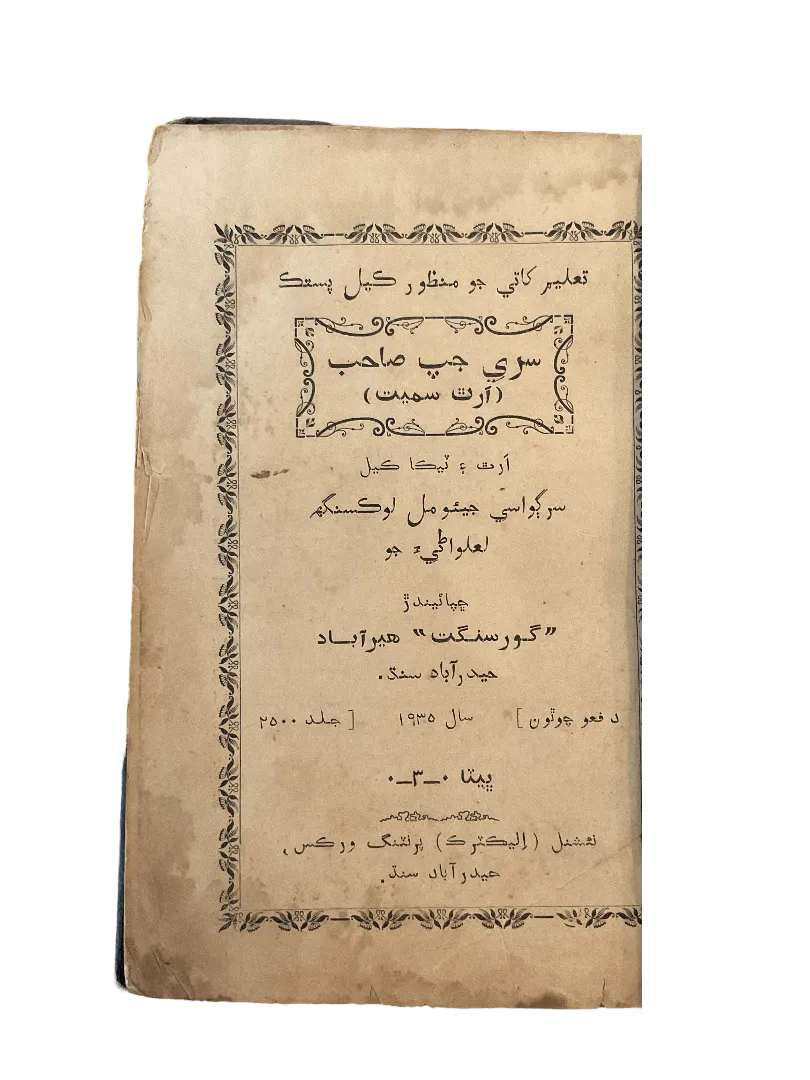 تعليم کاتي جو منظور ڪيل پستڪ
سري جپ صاحب
(اَرٿ سميت)
اَرٿ ۽ ٽيڪا ڪيل
سرڳواسي جيئومل لوڪسنگهہ
لعلواڻيءَ جو
ڇپائيندڙ
”گورسنگت“ هيرآباد
حيدرآباد سنڌ.
دفعو چوٿون] سال ١٩٣٥ [جلد ٢٥٠٠
ڀيٽا ٠–٣–٠
نئشنل (اِليڪٽرڪ) پرنٽنگ ورڪس،
حيدرآباد سنڌ.